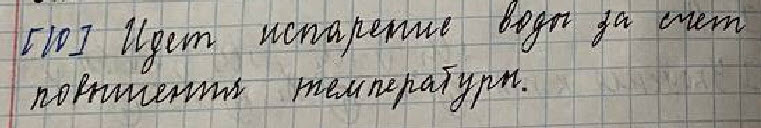 [10] Идет испарение воды за счет
повышения температуры.